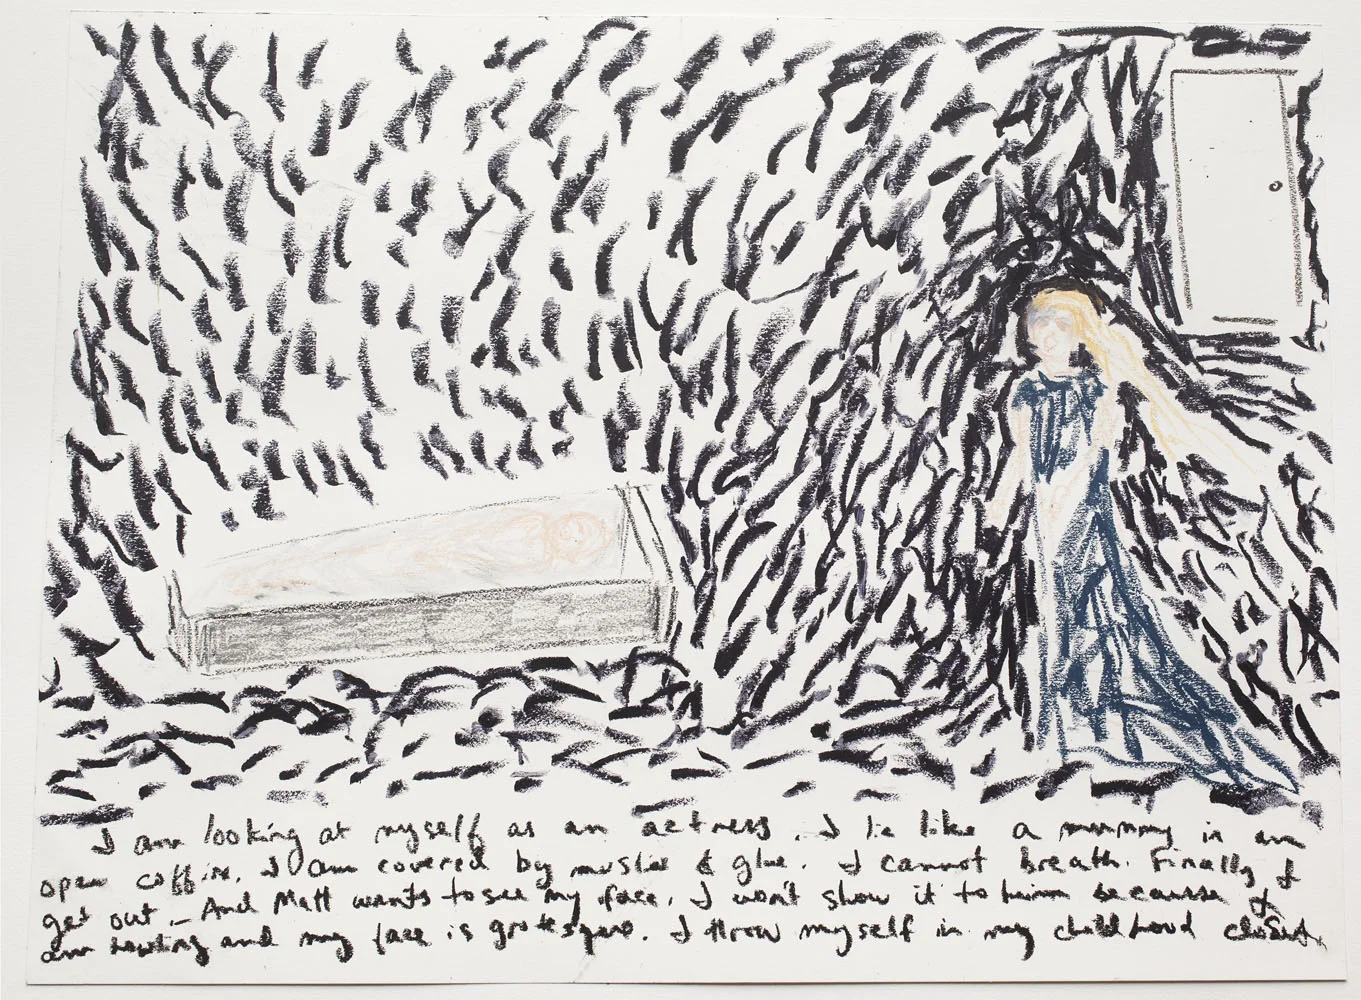 I am looking at myself as an actress. I lie like a mummy in an
open coffin. I am covered by muslin & glue. I cannot breath. Finally I
get out – And Matt wants to see my face. I won't show it to him because I
am howling and my face is grotesque. I throw myself in my childhood closet.